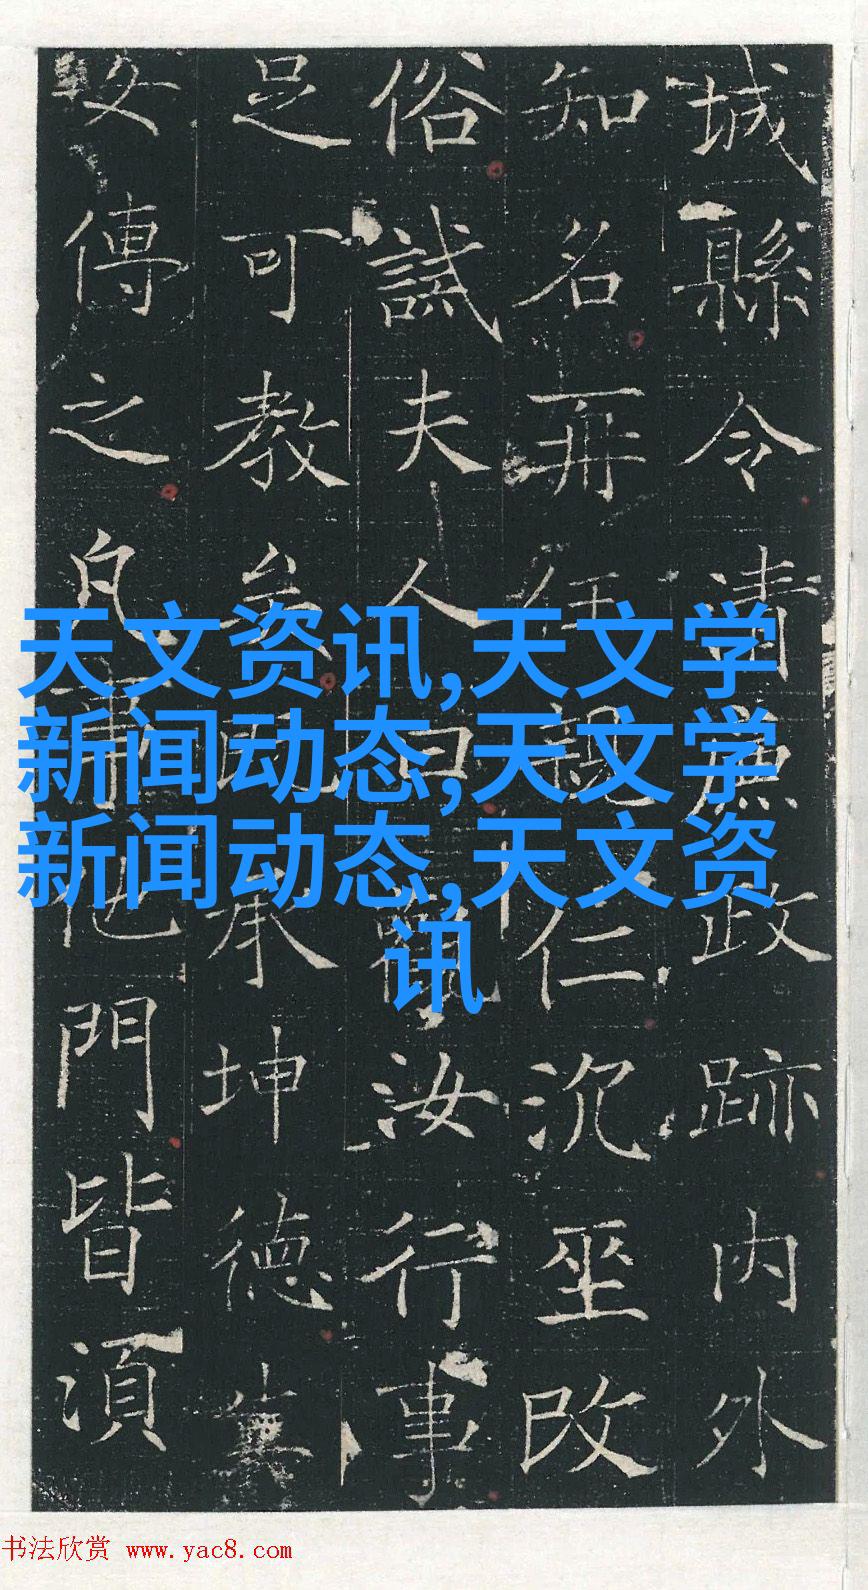 城縣令清廉政跡内外
知名再任親仁沉坐改
俗誡夫人曰觀汝行事
足可教矣既承坤德
傳之凡事他門皆須
天文资讯,天文学
新闻动态,天文学
新闻动态,天文资
讯
书法欣赏 www.yac8.com